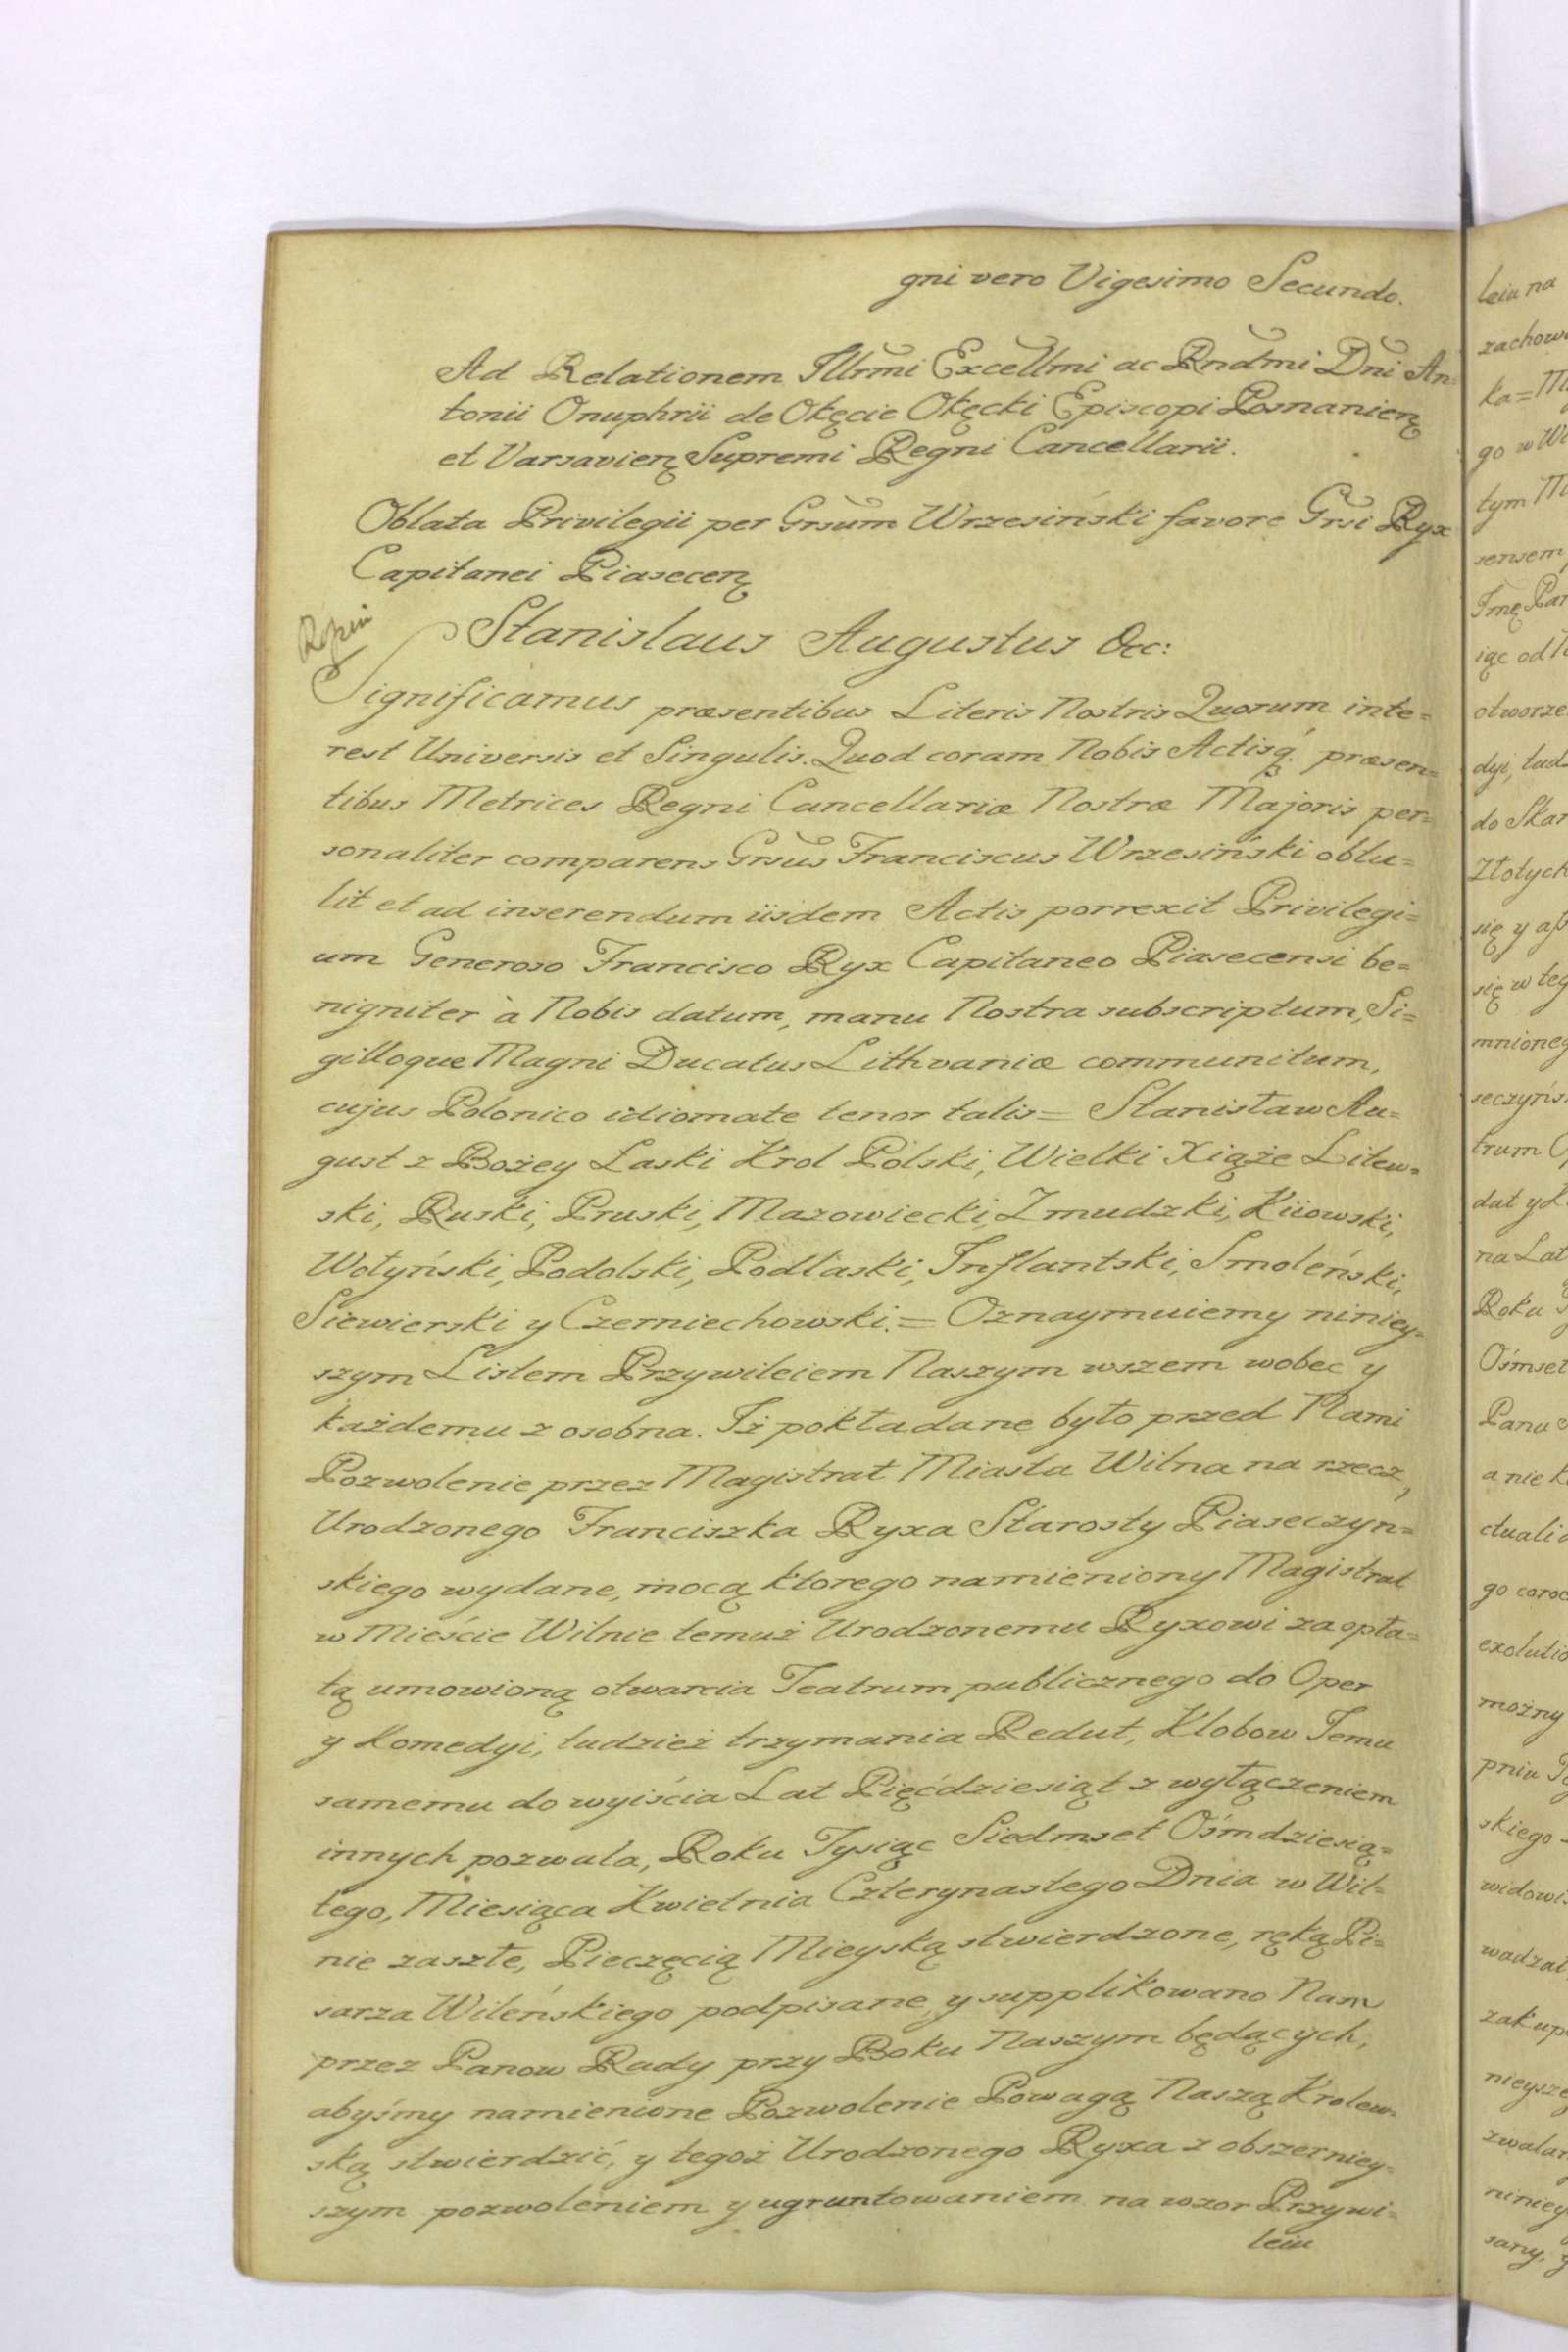 gni vero Vigesimo Secundo.
Ad Relationem Illrmi Excellmi ac Rndmi Dni An=
tonii Onuphrii de Okęcie Okęcki Episcopi Posnanien̨
et Varsavien̨ Supremi Regni Cancellarii.
Oblata Privilegii per Grsum Wrzesiński favore Grsi Ryx
Capitanei Piasecen̨
Stanislaus Augustus &c:
Significamus præsentibus Literis Nostris Quorum inte=
rest Universis et Singulis. Quod coram Nobis Actisq́ præsen=
tibus Metrices Regni Cancellariæ Nostræ Majoris per=
sonaliter comparens Grsus Franciscus Wrzesiński obtu=
lit et ad inserendum iisdem Actis porrexit Privilegi=
um Generoso Francisco Ryx Capitaneo Piasecensi be=
nigniter à Nobis datum, manu Nostra subscriptum, Si=
gilloque Magni Ducatus Lithvaniæ communitum,
cujus Polonico idiomate tenor talis = Stanisław Au=
gust z Bożey Łaski Krol Polski, Wielki Xiąże Litew=
ski, Ruski, Pruski, Mazowiecki, Zmudzki, Kiiowski,
Wołyński, Podolski, Podlaski, Inflantski, Smoleński,
Siewierski y Czerniechowski. = Oznaymuiemy niniey=
szym Listem Przywileiem Naszym wszem wobec y
każdemu z osobna. Iż pokładane było przed Nami
Pozwolenie przez Magistrat Miasta Wilna na rzecz,
Urodzonego Franciszka Ryxa Starosty Piaseczyn=
skiego wydane, mocą ktorego namieniony Magistrat
w Mieście Wilnie temuż Urodzonemu Ryxowi za opła=
tą umowioną otwarcia Teatrum publicznego do Oper
y Komedyi, tudzież trzymania Redut, Klobow Temu
samemu do wyiścia Lat Pięćdziesiąt z wyłączeniem
innych pozwala, Roku Tysiąc Siedmset Ośmdziesią=
tego, Miesiąca Kwietnia Czterynastego Dnia w Wil=
nie zaszłe, Pieczęcią Mieyską stwierdzone, ręką Pi=
sarza Wileńskiego podpisane, y supplikowano Nam
przez Panow Rady przy Boku Naszym będących,
abyśmy namienione Pozwolenie Powagą Naszą Krolew=
ską stwierdzić, y tegoż Urodzonego Ryxa z obszerniey=
szym pozwoleniem y ugruntowaniem na wzor Przywi=
leiu
leiu na
ka =
go w
tym
sensem
iąc od
dyi,
do
Złotych
się y
się w
trum
dat y
na Lat
Roku
Ośmset
Panu
a nie
go
możny
pniu
skiego